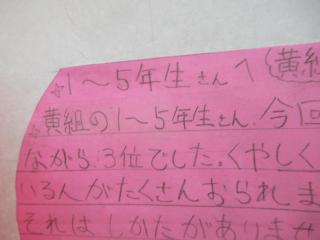 ☆1～5年生さんへ(黄組
☆黄組の1～5年生さん、今回
ながら、3位でした。くやしく
いる人がたくさんおられま
それはしかたがありませ